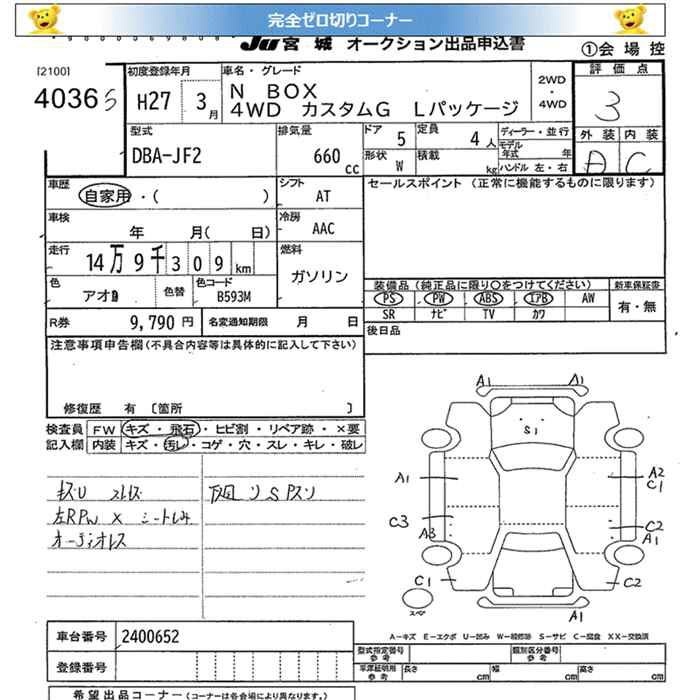 完全ゼロ切りコーナー
Ju 宮城 オークション出品申込書
①会場控
[2100]
4036
初度登録年月
H27 3月
車名・グレード
N BOX
4WD カスタムG Lパッケージ
2WD・4WD
評価点
3
外装 内装
A C
型式
DBA-JF2
排気量
660 cc
ドア 5
定員 4人
形状 W
積載 kg
ディーラー・並行
モデル年式 年
ハンドル 左・右
車歴
自家用・( )
シフト AT
セールスポイント (正常に機能するものに限ります)
車検 年 月( 日)
冷房 AAC
走行
14万9千309km
燃料
ガソリン
色
アオ
色替
色コード
B593M
装備品 (純正品に限り○をつけてください)
新車保証書
PS PW ABS エアB AW
有・無
SR ナビ TV カワ
R券 9,790円
名変通知期限 月 日
後日品
注意事項申告欄 (不具合内容等は具体的に記入して下さい)
修復歴 有 〔箇所 〕
検査員記入欄
FW キズ・飛石・ヒビ割・リペア跡・×要
内装 キズ・汚レ・コゲ・穴・スレ・キレ・破レ
キズU スレキズ
下廻リSアリ
左RPW × シートしみ
オーディオレス
A1 A1
S1
A1 A2
C1
C3 C2
A3 A1
C1 C2
スペア
A1
A-キズ E-エクボ U-凹み W-補修跡 S-サビ C-腐食 XX-交換済
車台番号 2400652
登録番号
型式指定番号 参考
類別区分番号 参考
車庫証明用 参考
長さ cm
幅 cm
高さ cm
希望出品コーナー (コーナーは各会場により異なります。)